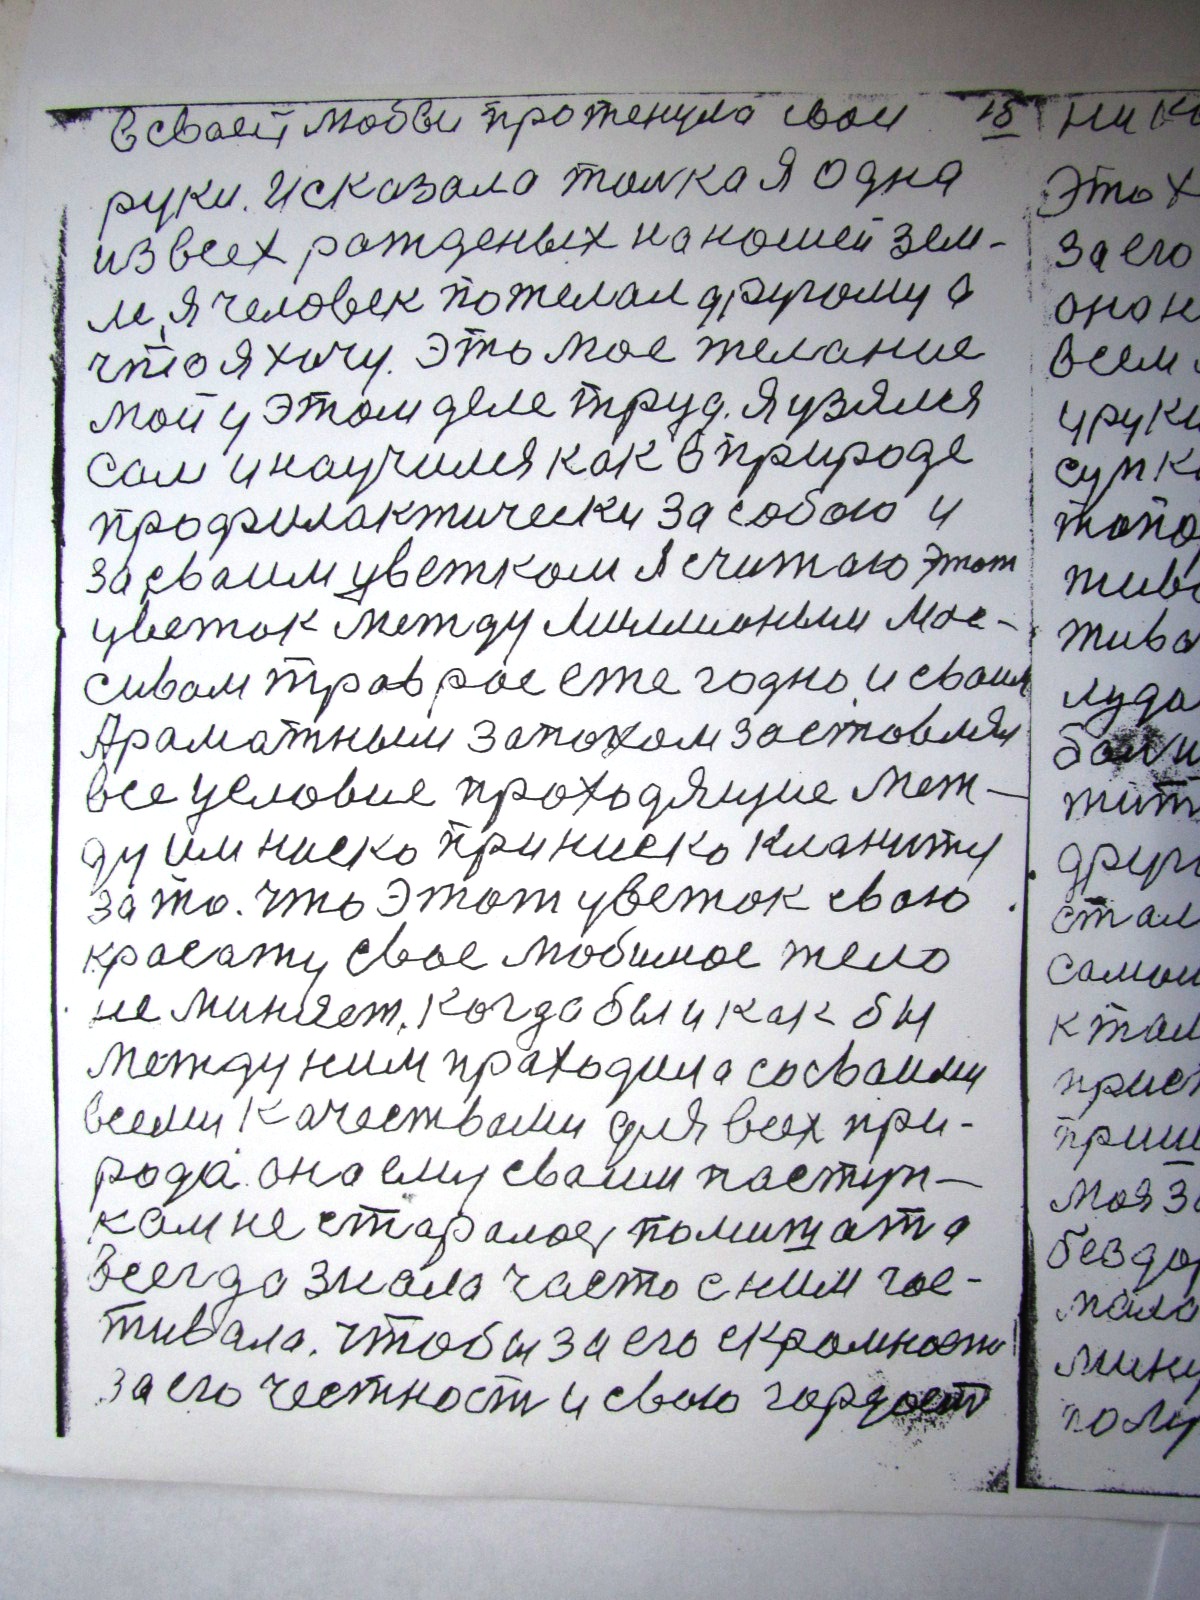 в сваей любви протенула свои 15
руки. И сказала толка я одна
из всех рожденых на ношей зем-
ле, я человек пожелал другому а
что я хочу. Это мое желание
мой у этом деле труд. Я узялся
сам и научился как в природе
профилактически за собою и
за сваим цветком я считаю этот
цветок между миллионым мас-
сивом трав рос еже годно и сваим
Араматным запохом застовлял
все условие проходящие меж-
ду им ниско приниско кланитца
за то. что этот цветок свою
красату свое любимое тело
не миняет. Когда бы и как бы
между ним праходила со сваими
всеми качествами для всех при-
рода она ему сваим паступ-
кам не старалос помишат а
всегда знала часто с ним гос-
тивала. чтобы за его скромност
за его честност и свою гордост
ни
Это
за его
она
всем
уруки
друг
стал
самои
к там
моя